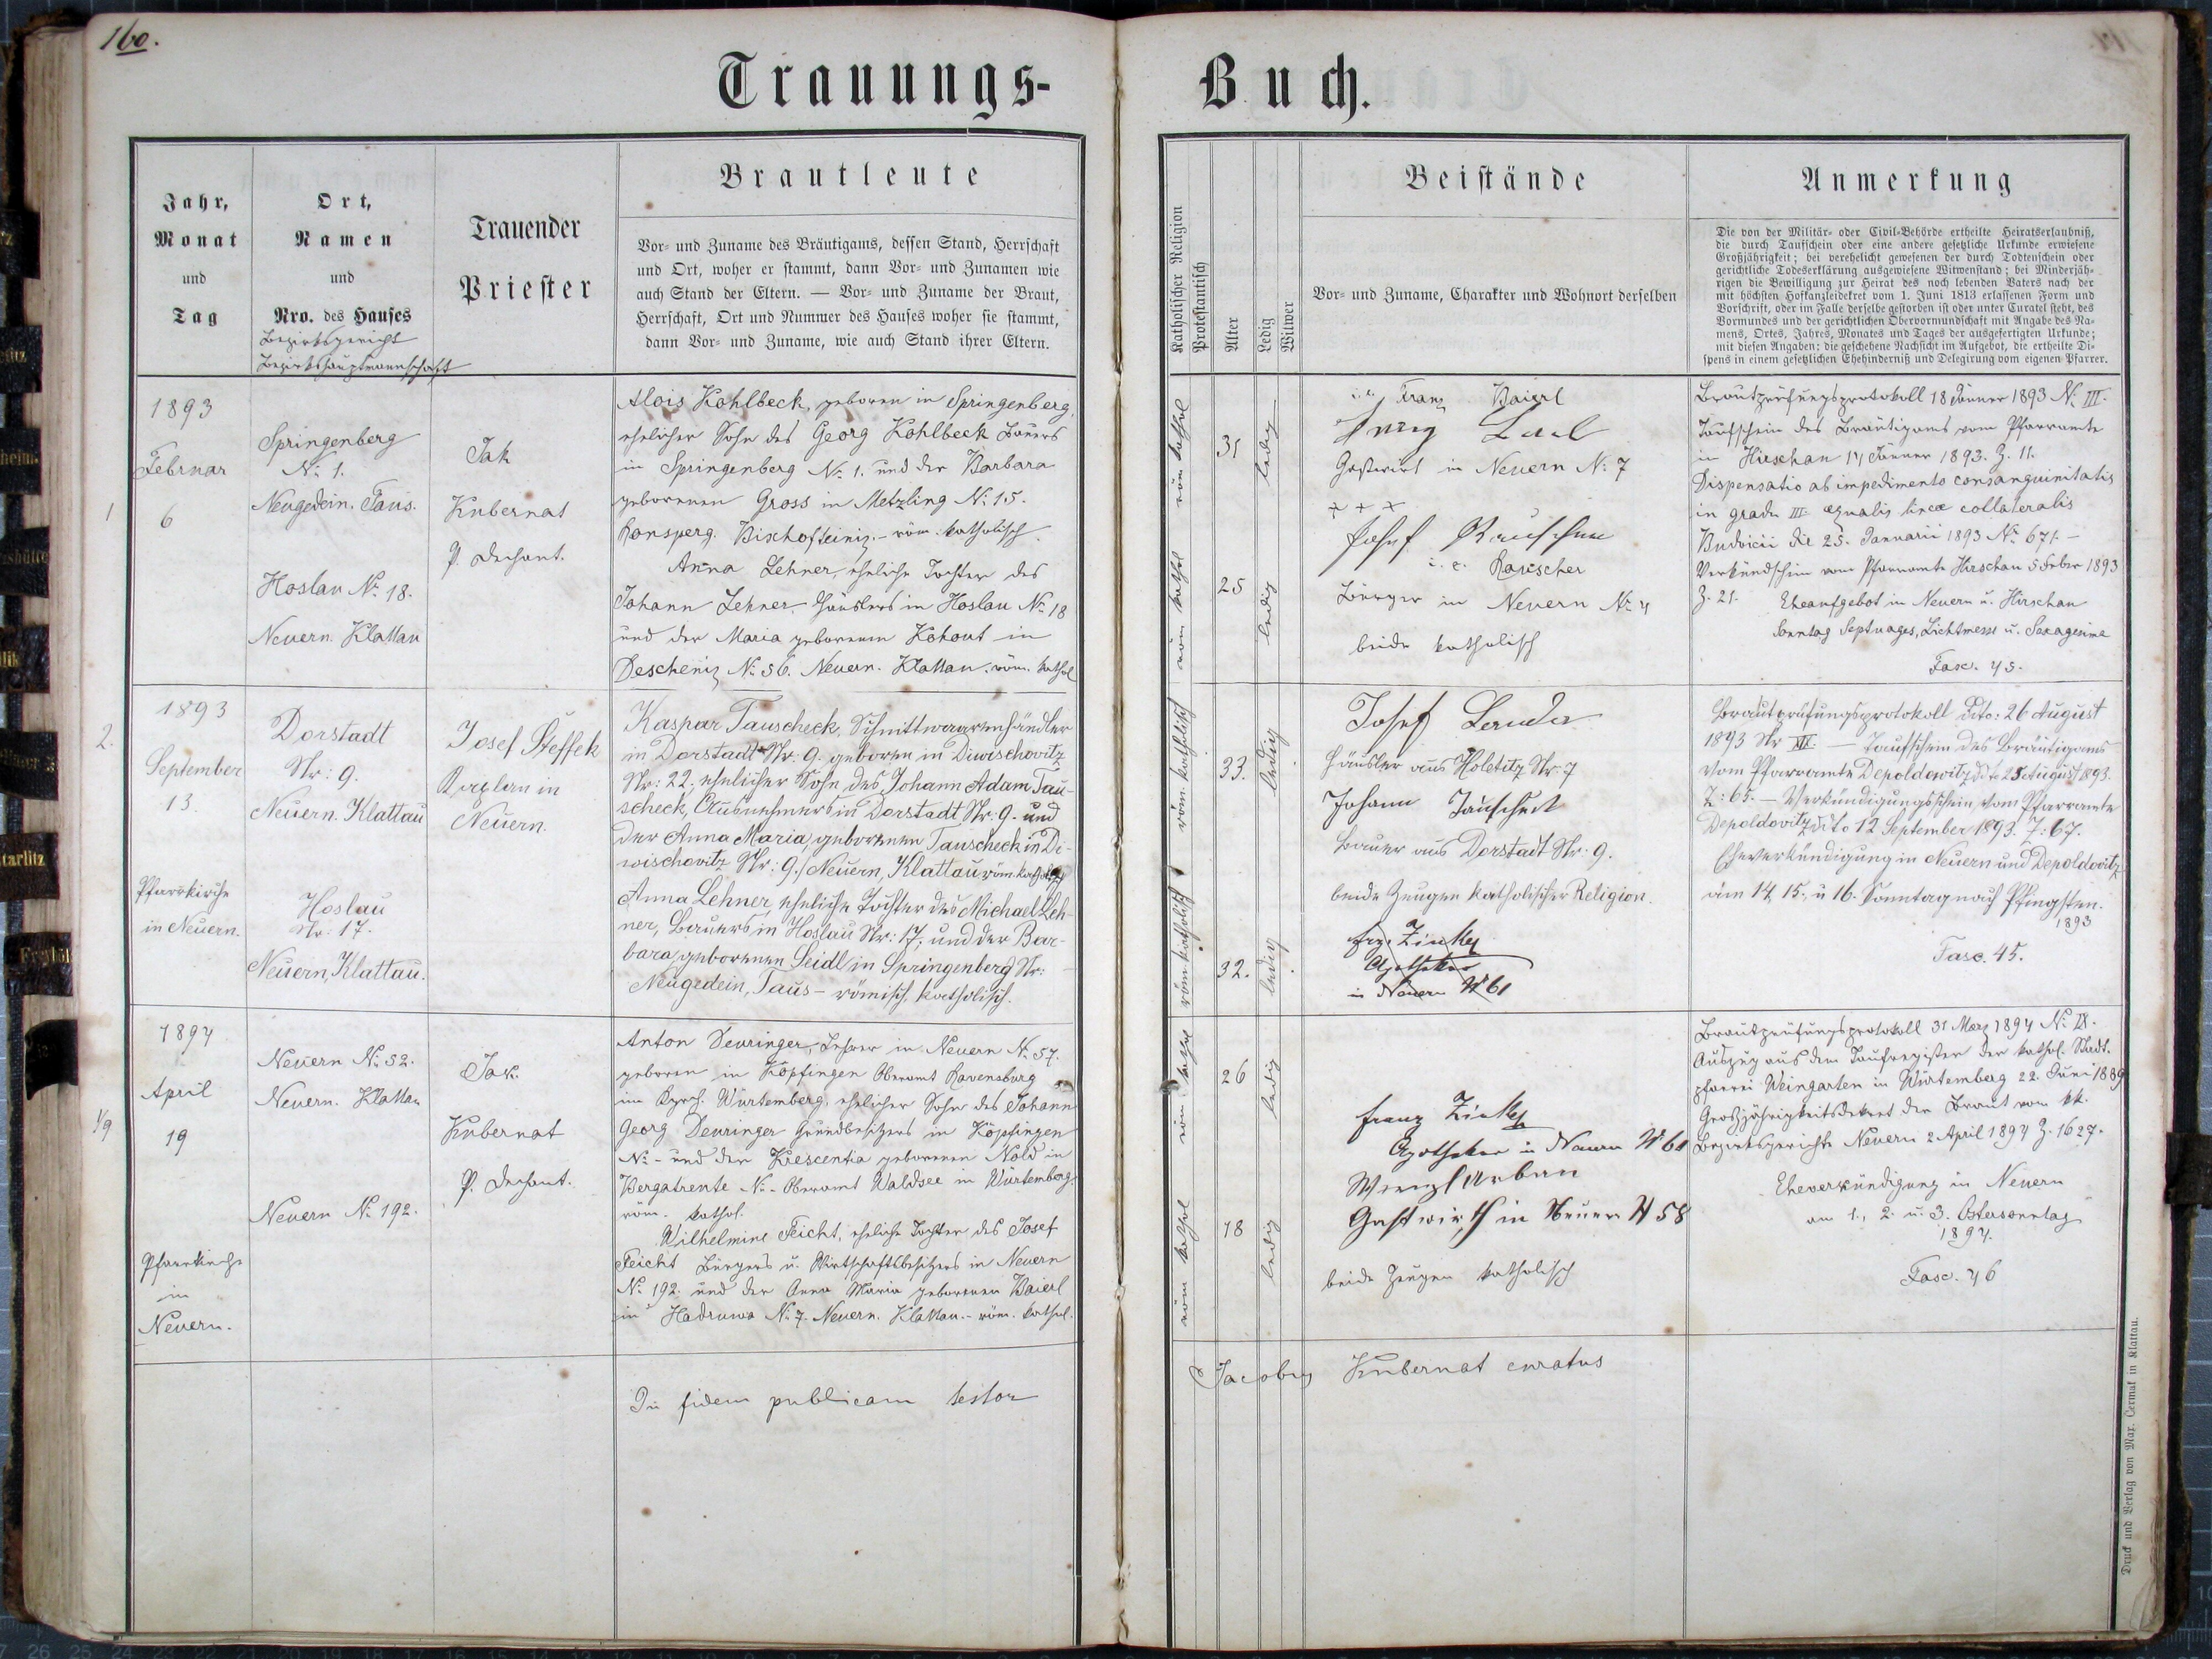 160.
Trauungs-
Buch.
Jahr,
Monat
und
Tag
Ort,
Namen
und
Nro. des Hauses
Bezirksgericht
Bezirkshauptmannschaft
Trauender
Priester
Brautleute
Vor- und Zuname des Bräutigams, dessen Stand, Herrschaft
und Ort, woher er stammt, dann Vor- und Zunamen wie
auch Stand der Eltern. — Vor- und Zuname der Braut,
Herrschaft, Ort und Nummer des Hauses woher sie stammt,
dann Vor- und Zuname, wie auch Stand ihrer Eltern.
Katholischer Religion
Protestantisch
Alter
Ledig
Witwer
Beistände
Vor- und Zuname, Charakter und Wohnort derselben
Anmerkung
Die von der Militär- oder Civil-Behörde ertheilte Heiratserlaubniß,
die durch Taufschein oder eine andere gesetzliche Urkunde erwiesene
Großjährigkeit; bei verehelicht gewesenen der durch Todtenschein oder
gerichtliche Todeserklärung ausgewiesene Witwenstand; bei Minderjäh-
rigen die Bewilligung zur Heirat des noch lebenden Vaters nach der
mit höchsten Hofkanzleidekret vom 1. Juni 1813 erlassenen Form und
Vorschrift, oder im Falle derselbe gestorben ist oder unter Curatel steht, des
Vormundes und der gerichtlichen Obervormundschaft mit Angabe des Na-
mens, Ortes, Jahres, Monates und Tages der ausgefertigten Urkunde;
mit diesen Angaben: die geschehene Nachsicht im Aufgebot, die ertheilte Di-
spens in einem gesetzlichen Ehehinderniß und Delegirung vom eigenen Pfarrer.
1
1893
Februar
6
Springenberg
No 1.
Neugedein. Taus.
Hoslau No 18.
Neuern. Klattau
Jak
Kubernat
P. Dechant.
Alois Kohlbeck, geboren in Springenberg,
ehelicher Sohn des Georg Kohlbeck Bauers
in Springenberg No 1. und der Barbara
geborenen Gross in Metzling No 15.
Ronsperg. Bischofteiniz. - röm. katholisch.
Anna Lehner, eheliche Tochter des
Johann Lehner Häuslers in Hoslau No 18
und der Maria geborenen Kohout in
Descheniz No 56. Neuern. Klattau. röm. kathol
röm kathol
31
ledig
röm kathol
25
ledig
Franz Baierl
Gastwirt in Neuern No 7
+ + +
Josef Rauscher
Rauscher
Bürger in Neuern No 4
beide katholisch
Brautprüfungsprotokoll 18 Jänner 1893 No III.
Taufschein des Bräutigams vom Pfarramte
in Hirschau 14 Jänner 1893. Z. 11.
Dispensatio ab impedimento consanguinitatis
in gradu III aequalis lineae collateralis
Budvicii die 25. Januarii 1893 No 671. -
Verkündschein vom Pfarramte Hirschau 5 Feber 1893
Z. 21. Eheaufgebot in Neuern u. Hirschau
Sonntag Septuages, Lichtmess u. Sexagesima
Fasc. 45.
2.
1893
September
13.
Pfarrkirche
in Neuern.
Dorstadt
Nr: 9.
Neuern. Klattau
Hoslau
Nr: 17.
Neuern, Klattau.
Josef Steffek
Kaplan in
Neuern.
Kaspar Tauscheck, Schnittwaarenhändler
in Dorstadt Nr. 9. geboren in Diwischovitz
Nr: 22, ehelicher Sohn des Johann Adam Tau-
scheck, Ausnehmers in Dorstadt Nr. 9. und
der Anna Maria, geborenen Tauscheck in Di-
wischovitz Nr: 9./ Neuern, Klattau röm. kathol.
Anna Lehner, eheliche Tochter des Michael Leh-
ner, Bauers in Hoslau Nr: 17, und der Bar-
bara, geborenen Seidl in Springenberg Nr:
Neugedein, Taus - römisch. katholisch.
röm. katholisch
33.
ledig
röm. katholisch
32.
ledig
Josef
Häusler aus Holetitz Nr. 7
Johann Tauscheck
Bauer aus Dorstadt Nr: 9.
beide Zeugen katholischer Religion.
Frz. Zinke
Apotheker
in Neuern No 61
Brautprüfungsprotokoll dto: 26 August
1893 Nr XIX. — Taufschein des Bräutigams
vom Pfarramte Depoldowitz ddto 25 August 1893.
Z: 65. — Verkündigungsschein vom Pfarramte
Depoldovitz ddto 12 September 1893. Z: 67.
Eheverkündigung in Neuern und Depoldovitz
am 14, 15. u 16. Sonntag nach Pfingsten.
1893
Fasc. 45.
1/9
1894
April
19
Pfarrkirche
in
Neuern.
Neuern No 52.
Neuern. Klattau
Neuern No 192.
Jak.
Kubernat
P. Dechant.
Anton Deuringer, Lehrer in Neuern No 57.
geboren in Köpfingen Oberamt Ravensburg
im Kgrch. Würtemberg, ehelicher Sohn des Johann
Georg Deuringer Grundbesitzers in Köpfingen
No - und der Krescentia geborenen Nold in
Bergatreute No - Oberamt Waldsee in Würtemberg.
röm. kathol.
Wilhelmine Feicht, eheliche Tochter des Josef
Feicht Bürgers u. Wirtschaftsbesitzers in Neuern
No 192. und der Anna Maria geborenen Baierl
in Hadruwa No 7. Neuern. Klattau. - röm. kathol.
röm kathol
26
ledig
röm kathol
18
ledig
Franz Zinke
Apotheker in Neuern No 61
Wenzl Urban
Gastwirth in Neuern N 58
beide Zeugen katholisch
Brautprüfungsprotokoll 31 März 1894 No IX.
Auszug aus dem Taufregister der kathol. Stadt-
pfarrei Weingarten in Würtemberg 22. Juni 1889
Grossjährigkeitsdekret der Braut vom kk.
Bezirksgerichte Neuern 2 April 1894 Z. 1627.
Eheverkündigung in Neuern
am 1., 2. u. 3. Ostersonntag
1894.
Fasc. 46
In fidem publicam testor
Jacobus Kubernat curatus
Druck und Verlag von Max. Čermak in Klattau.